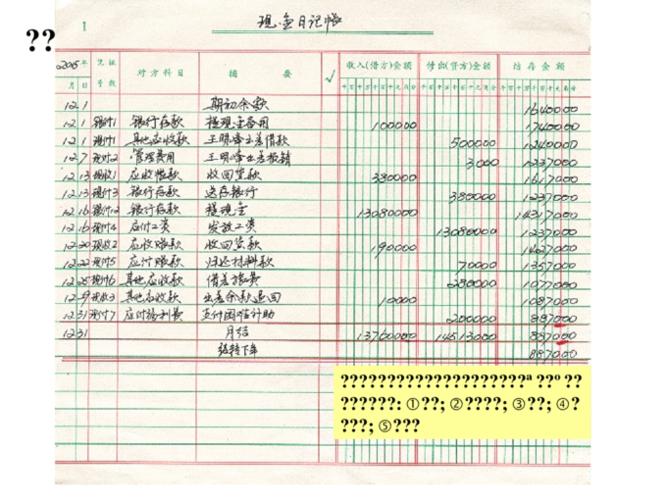 现金日记帐
??
1
2005年 凭证 对方科目 摘要 √ 收入(借方)金额 付出(贷方)金额 结存金额
月 日 号数 千百十万千百十元角分 千百十万千百十元角分 千百十万千百十元角分
12 1 期初余款 1640000
12 1 银付1 银行存款 提现金备用 100000 1740000
12 1 现付1 其他应收款 王明李出差借款 500000 1240000
12 7 现付2 管理费用 王明李出差报销 3000 1237000
12 13 现收1 应收帐款 收回货款 380000 1617000
12 13 现付3 银行存款 送存银行 380000 1237000
12 16 银付12 银行存款 提现金 13080000 14317000
12 16 现付4 应付工资 发放工资 13080000 1237000
12 20 现收2 应收账款 收回货款 190000 1427000
12 22 现付5 应付账款 归还材料款 70000 1357000
12 25 现付6 其他应收款 借差旅费 280000 1077000
12 29 现收3 其他应收款 出差余款退回 10000 1087000
12 31 现付7 应付福利费 支付困难补助 200000 887000
12 31 月结 13760000 14513000 887000
结转下年 887000
????????????????????ª ??º ??
??????: ①??; ②????; ③??; ④?
???; ⑤???